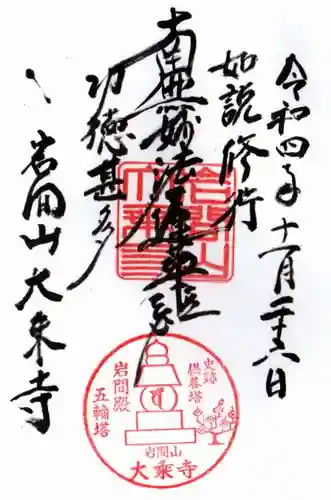 令和四年十一月二十六日
如説修行
南無妙法蓮華経
功徳甚多
岩間山大乗寺
史跡
供養塔
岩間殿
五輪塔
岩間山
大乗寺